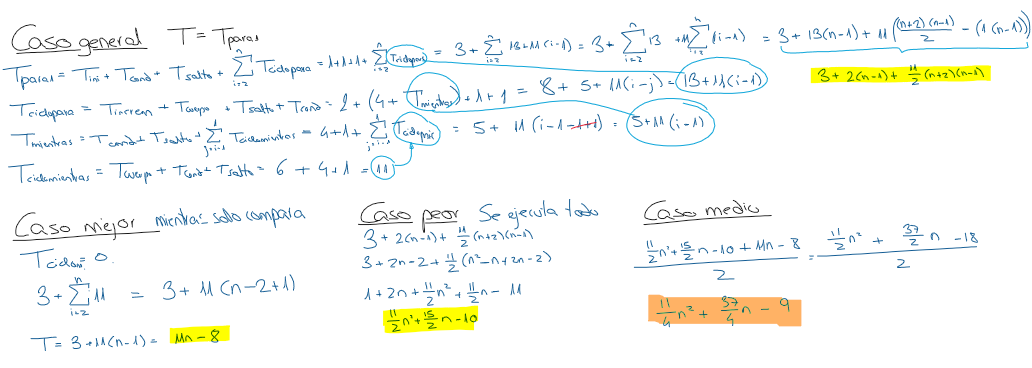 Caso general T = Tparas
Tparas = Tini + Tcond + Tsalto + ∑_{i=2}^{n} Tciclopara = 1+1+1+ ∑_{i=2}^{n} Tciclopara = 3 + ∑_{i=2}^{n} 13+11(i-1) = 3 + ∑_{i=2}^{n} 13 + 11∑_{i=2}^{n} (i-1) = 3 + 13(n-1) + 11((n+2)(n-1)/2 - (1(n-1)))
3 + 2(n-1) + 11/2 (n+2)(n-1)
Tciclopara = Tincrem + Tcuerpo + Tsalto + Tcond = 2 + (4 + Tmientras) + 1 + 1 = 8 + 5 + 11(i-j) = 13+11(i-1)
Tmientras = Tcond + Tsalto + ∑_{j=i-1}^{1} Tciclomientras = 4+1+ ∑_{j=i-1}^{1} = 5 + 11(i-1-1+1) = 5+11(i-1)
Tciclomientras = Tcuerpo + Tcond + Tsalto = 6 + 4 + 1 = 11
Caso mejor mientras solo compara
= 0.
3 + ∑_{i=2}^{n} 11 = 3 + 11(n-2+1)
T = 3 + 11(n-1) = 11n - 8
Caso peor Se ejecuta todo
3 + 2(n-1) + 11/2 (n+2)(n-1)
3 + 2n - 2 + 11/2 (n² - n + 2n - 2)
1 + 2n + 11/2 n² + 11/2 n - 11
11/2 n² + 15/2 n - 10
Caso medio
(11/2 n² + 15/2 n - 10 + 11n - 8)/2 = (11/2 n² + 37/2 n - 18)/2
11/4 n² + 37/4 n - 9